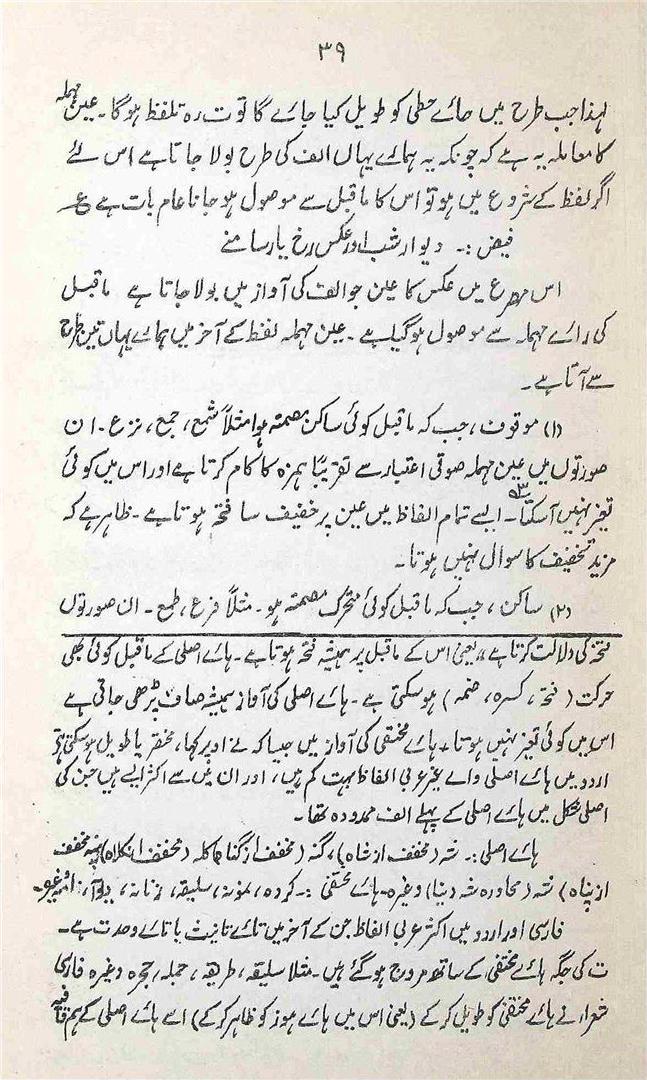 ۳۹
لہذا جب طرح میں حائے حطی کو طویل کیا جائے گا تو ت رہ تلفظ ہوگا۔ عین مہملہ
کا معاملہ یہ ہے کہ چونکہ یہ ہمارے یہاں الف کی طرح بولا جاتا ہے اس لئے
اگر لفظ کے شروع میں ہو تو اس کا ماقبل سے موصول ہو جانا عام بات ہے ع
فیض :۔ دیوار شب اور عکس رخ یار سامنے
اس مصرع میں عکس کا عین جو الف کی آواز میں بولا جاتا ہے ماقبل
کی رائے مہملہ سے موصول ہو گیا ہے۔ عین مہملہ لفظ کے آخر میں ہمارے یہاں تین طرح
سے آتا ہے۔
(۱) موقوف، جب کہ ماقبل کوئی ساکن مصمتہ ہو مثلاً شمع، جمع، نزع۔ ان
صورتوں میں عین مہملہ صوتی اعتبار سے تقریباً ہمزہ کا کام کرتا ہے اور اس میں کوئی
تغیر نہیں آسکتا۔ ایسے تمام الفاظ میں عین پر خفیف سا فتحہ ہوتا ہے۔ ظاہر ہے کہ
مزید تخفیف کا سوال نہیں ہوتا۔
(۲) ساکن، جب کہ ماقبل کوئی متحرک مصمتہ ہو۔ مثلاً فرع، طمع۔ ان صورتوں
فتحہ کی دلالت کرتا ہے، یعنی اس کے ماقبل پر ہمیشہ فتحہ ہوتا ہے۔ ہائے اصلی کے ماقبل کوئی بھی
حرکت (فتحہ، کسرہ، ضمہ) ہو سکتی ہے۔ ہائے اصلی کی آواز ہمیشہ صاف پڑھی جاتی ہے
اس میں کوئی تغیر نہیں ہوتا۔ ہائے مختفی کی آواز میں جیسا کہ نے اوپر کہا، مختصر یا طویل ہو سکتی ہے
اردو میں ہائے اصلی والے غیر عربی الفاظ بہت کم ہیں، اور ان میں سے اکثر ایسے ہیں جن کی
اصلی شکل میں ہائے اصلی کے پہلے الف ممدودہ تھا۔
ہائے اصلی :۔ شہ (مخفف از شاہ)، گنہ (مخفف از گناہ) کلہ (مخفف از کلاہ) پنہ مخفف
از پناہ) شہ (محاورہ شہ دینا) وغیرہ۔ ہائے مختفی :۔ کردہ، نمونہ، سلیقہ، زنانہ،
فارسی اور اردو میں اکثر عربی الفاظ جن کے آخر میں تائے تانیث یا تائے وحدت ہے۔
ت کی جگہ ہائے مختفی کے ساتھ مروج ہو گئے ہیں۔ مثلاً سلیقہ، طریقہ، حملہ، حجرہ وغیرہ فارسی
شعرا نے ہائے مختفی کو طویل کر کے (یعنی اس میں ہائے ہوز کو ظاہر کر کے) اسے ہائے اصلی کے ہم قافیہ